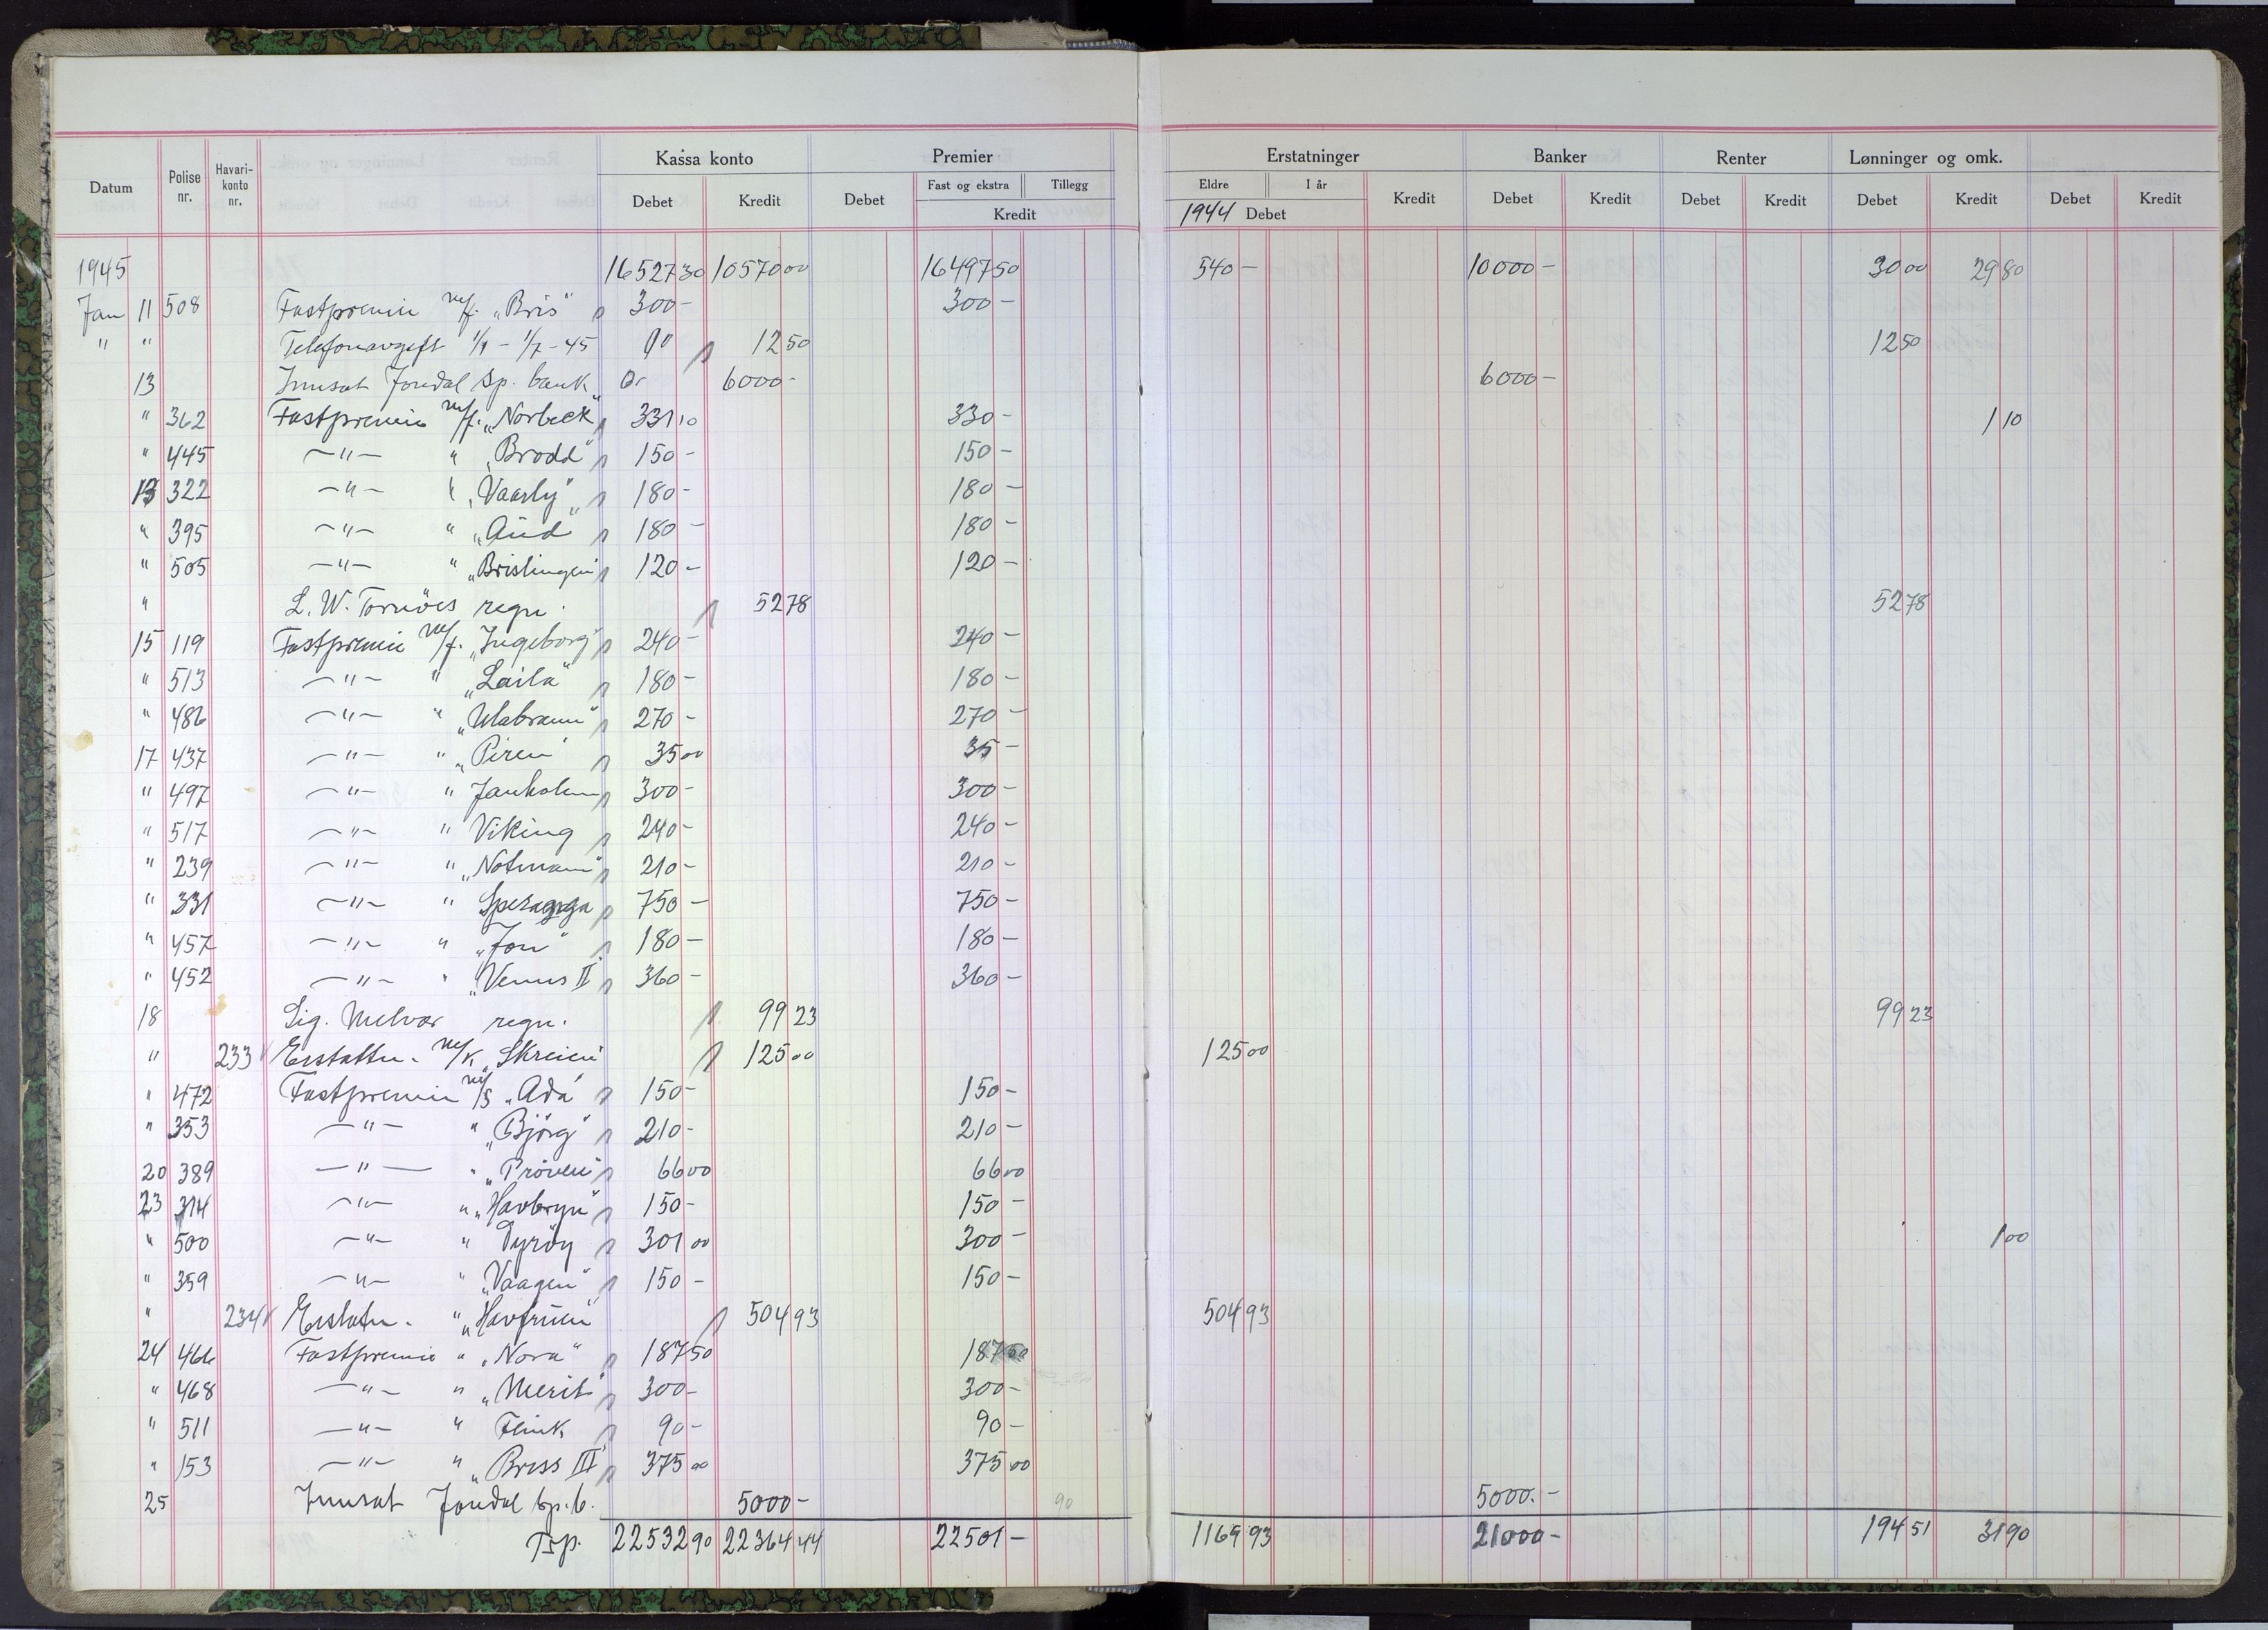 Datum Polise nr. Havari-konto nr. Kassa konto Premier Erstatninger Banker Renter Lønninger og omk.
Debet Kredit Debet Fast og ekstra Tillegg Eldre I år Kredit Debet Kredit Debet Kredit Debet Kredit Debet Kredit
Kredit 1944 Debet
1945 16527 30 10570 00 16497 50 540 - 10000 - 30 00 29 80
Jan 11 508 Fastpremie m/f. „Bris" 300 - 300 -
" " Telefonavgift 1/1 - 1/7 - 45 12 50 12 50
13 Innsat Jondal Sp. bank 6000 - 6000 -
" 362 Fastpremie m/f. „Norbeck" 331 10 330 - 1 10
" 445 -"- " „Brodd" 150 - 150 -
13 322 -"- " „Vaarly" 180 - 180 -
" 395 -"- " „Aud" 180 - 180 -
" 505 -"- " „Brislingen" 120 - 120 -
" L. W. Tornöes regn. 52 78 52 78
15 119 Fastpremie m/f. „Ingeborg" 240 - 240 -
" 513 -"- " „Laila" 180 - 180 -
" 486 -"- " „Ulabrand" 270 - 270 -
17 437 -"- " „Piren" 35 00 35 -
" 497 -"- " Jankolm 300 - 300 -
" 517 -"- " Viking 240 - 240 -
" 239 -"- " „Notmann" 210 - 210 -
" 331 -"- " 750 - 750 -
" 457 -"- " „Jon" 180 - 180 -
" 452 -"- " „Venus II" 360 - 360 -
18 Sig. Melvær regn. 99 23 99 23
" 233 Erstattn. m/k „Skreien" 125 00 125 00
" 472 Fastpremie m/s „Ada" 150 - 150 -
" 353 -"- " „Björg" 210 - 210 -
20 389 -"- " „Pröven" 66 00 66 00
23 314 -"- " „Havbryn" 150 - 150 -
" 500 -"- " Dyröy 301 00 300 - 1 00
" 359 -"- " „Vaagen" 150 - 150 -
" 234 Erstatn. " „Havfruen" 504 93 504 93
24 466 Fastpremie " „Nora" 187 50 187 50
" 468 -"- " „Merit" 300 - 300 -
" 511 -"- " Flink 90 - 90 -
" 153 -"- " „Briss III" 375 00 375 00
25 Innsat Jondal sp.b. 5000 - 90 5000. -
Tsp. 22532 90 22364 44 22501 - 1169 93 21000 - 194 51 31 90